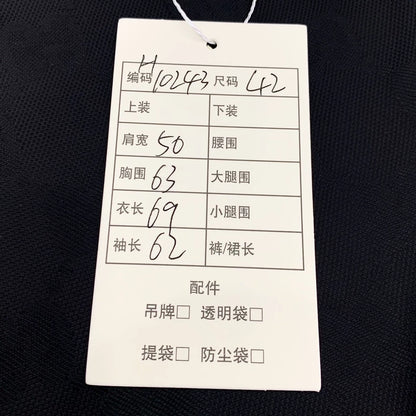 编码 H10243 尺码 42
上装 下装
肩宽 50 腰围
胸围 63 大腿围
衣长 69 小腿围
袖长 62 裤/裙长
配件
吊牌□ 透明袋□
提袋□ 防尘袋□